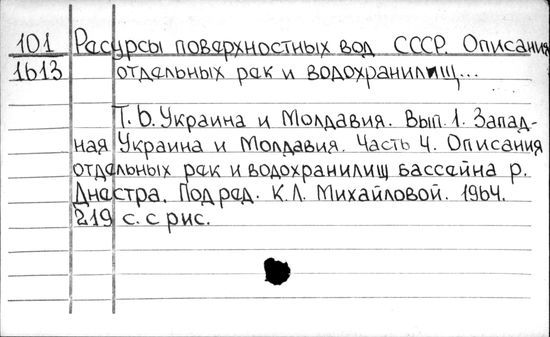 101 Ресурсы поверхностных вод СССР. Описания
1613 отдельных рек и водохранилищ...
Т. 6. Украина и Молдавия. Вып. 1. Запад-
ная Украина и Молдавия. Часть 4. Описания
отдельных рек и водохранилищ бассейна р.
Днестра. Под ред. К.Л. Михайловой. 1964.
219 с. с рис.